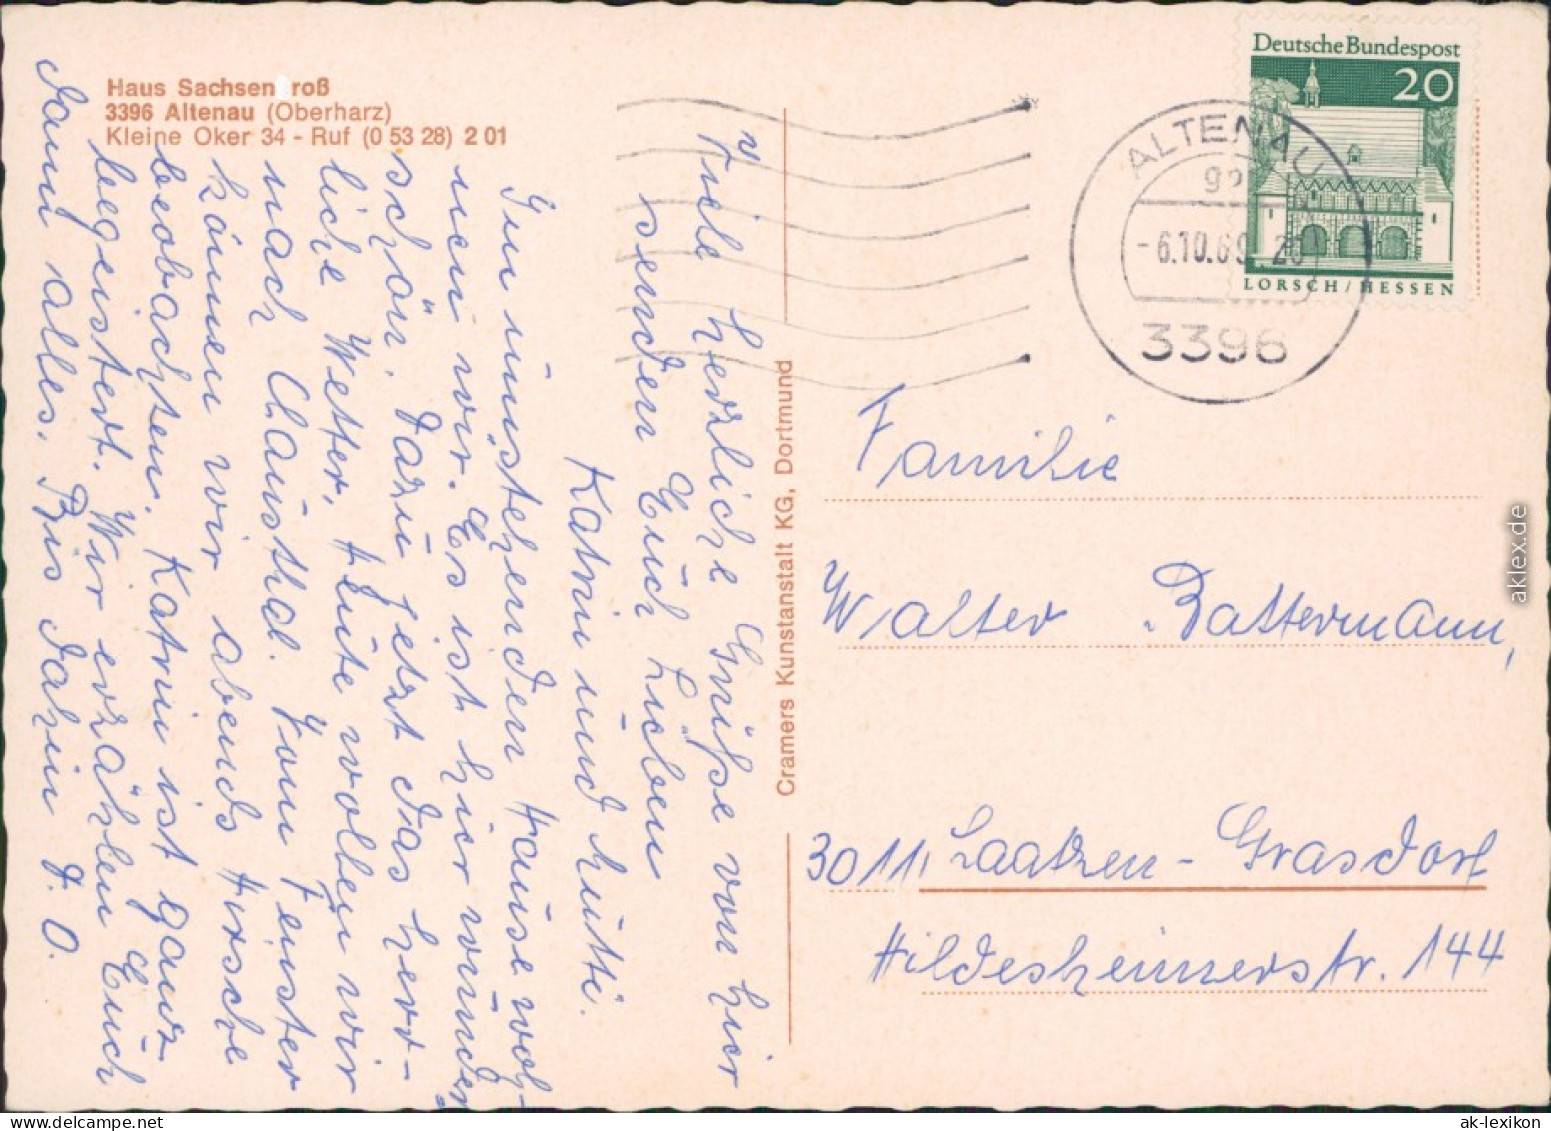 Haus Sachsen roß
3396 Altenau (Oberharz)
Kleine Oker 34 - Ruf (0 53 28) 2 01
Viele herzliche Grüße von hier
senden Euch Lieben
Katrin und
Im umstehenden Hause woh-
nen wir. Es ist hier wunder
schön. Dazu jetzt das herr-
liche Wetter. Heute wollen wir
nach Clausthal. Vom Fenster
können wir abends Hirsche
beobachten. Katrin ist ganz
begeistert. Wir erzählen Euch
dann alles. Bis dahin
Cramers Kunstanstalt KG, Dortmund
Deutsche Bundespost
20
LORSCH/HESSEN
ALTENAU
-6.10.69.20
3396
Familie
Walter Battermann,
3011 Laatzen-Grasdorf
Hildesheimerstr. 144
aklex.de
ak-lexikon